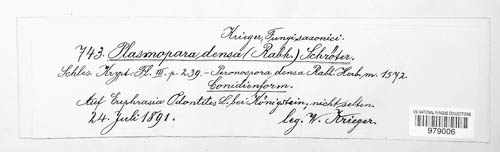 Krieger, Fungi saxonici.
743. Plasmopara densa (Rabh.) Schröter.
Schles. Krypt. Fl. III. p. 239. – Peronospora densa Rabh. Herb. m. 1572.
Conidienform.
Auf Euphrasia Odontites L. bei Königstein, nicht selten.
24. Juli 1891. leg. W. Krieger.
US NATIONAL FUNGUS COLLECTIONS
979006